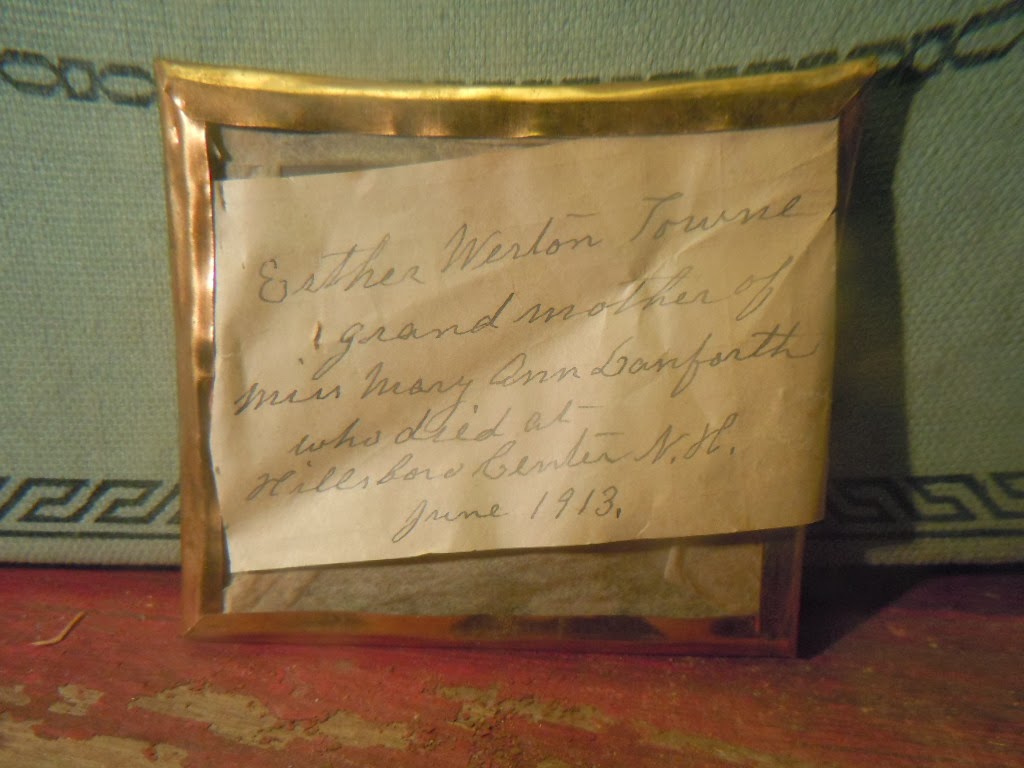 Esther Weston Towne
grandmother of
Miss Mary Ann Danforth
who died at
Hillsboro Center N.H.
June 1913.